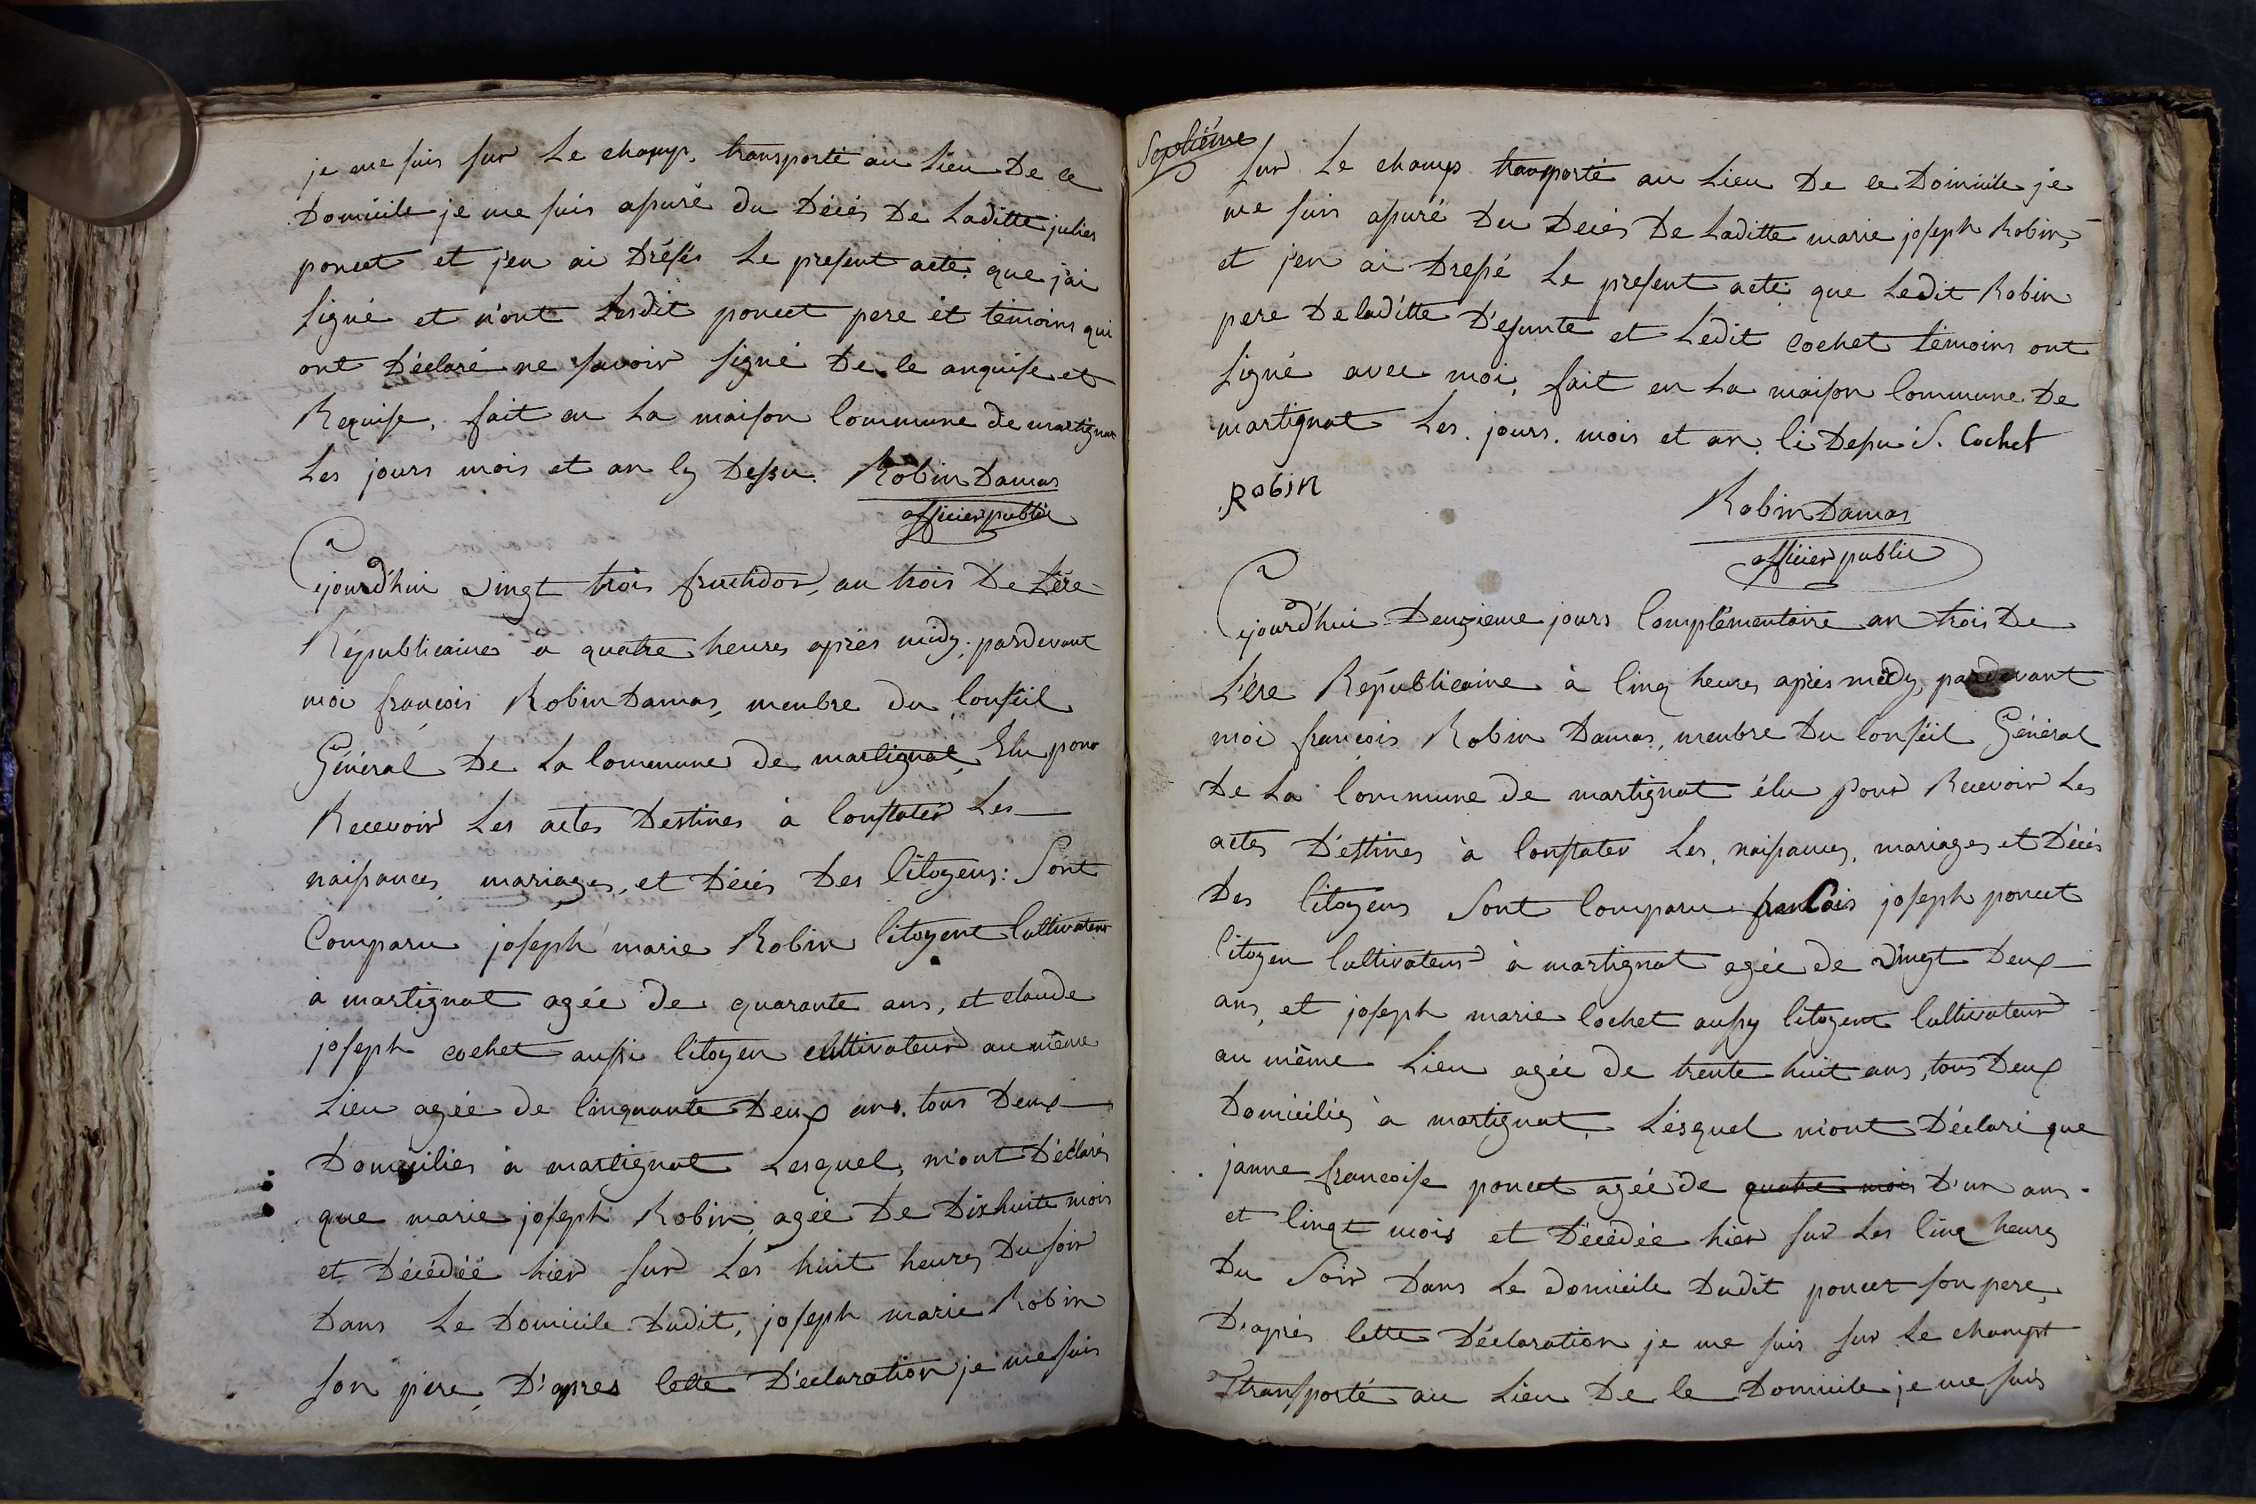 je me suis sur Le champ, transporté au Lieu De ce
Domicile je me suis assuré du Décés De Laditte julien
poncet et j'en ai Drésés Le present acte que j'ai
signé et n'ont Lesdit poncet pere et témoins qui
ont Déclaré ne savoir signé De ce anquise et
Requise, fait en La maison Commune de martignat
Les jours mois et an Cy Dessu. Robin Damas
officier public
Cejourd'hui vingt trois fructidor, an trois De Lére
Républicaine à quatre heures aprés midy, pardevant
moi francois Robin Damas, membre Du Conseil
Général De La Commune de martignat Elu pour
Recevoir Les actes Destines à Constater Les
naissances, mariages, et Décés Des Citoyens: Sont
Comparu joseph marie Robin Citoyent Cultivateur
à martignat agée de quarante ans, et claude
joseph cochet aussi Citoyen Cultivateur au même
Lieu agée de Cinquante Deux ans, tous Deux
Domicilies à martignat Lesquel, m'ont Déclarés
que marie joseph Robin, agée De Dixhuite mois
et Décédéé hier sur Les huit heures Du soir
Dans Le Domicile Dudit, joseph marie Robin
son pere, D'apres Cette Déclaration je me suis
Septiéme
sur Le champs transporté au Lieu De ce Domicile je
me suis assuré Du Decés De Laditte marie joseph Robin,
et j'en ai Dressé Le present acte que Ledit Robin
pere De laditte Défunte et Ledit cochet témoins ont
signé avec moi, fait en La maison Commune De
martignat Les. jours. mois et an, Ci Dessu J. Cochet
Robin
Robin Damas
officier public
Cejourd'hui Deuzieme jours Complémentaire an trois De
L'ére Républicaine à Cinq heures aprés midy, pardevant
moi francois Robin Damas, membre Du Conseil Général
De La Commune de martignat élu pour Recevoir Les
actes Déstines à Constater Les, naissances, mariages et Décés
Des Citoyens Sont Comparu franCois joseph poncet
Citoyen Cultivateur à martignat agée de vingt Deux
ans, et joseph marie Cochet aussy Citoyent Cultivateur
au même Lieu agée de trente huit ans, tous Deux
Domiciliés à martignat, Lesquel m'ont Déclaré que
janne francoise poncet agée de quatre mois D'un ans
et Cinqt mois et Décédée hier sur Les Cinq heures
Du Soir Dans Le domicile Dudit poncet son pere,
D'aprés Cette Déclaration je me suis sur Le champt
transporté au Lieu De Ce Domicile je me suis